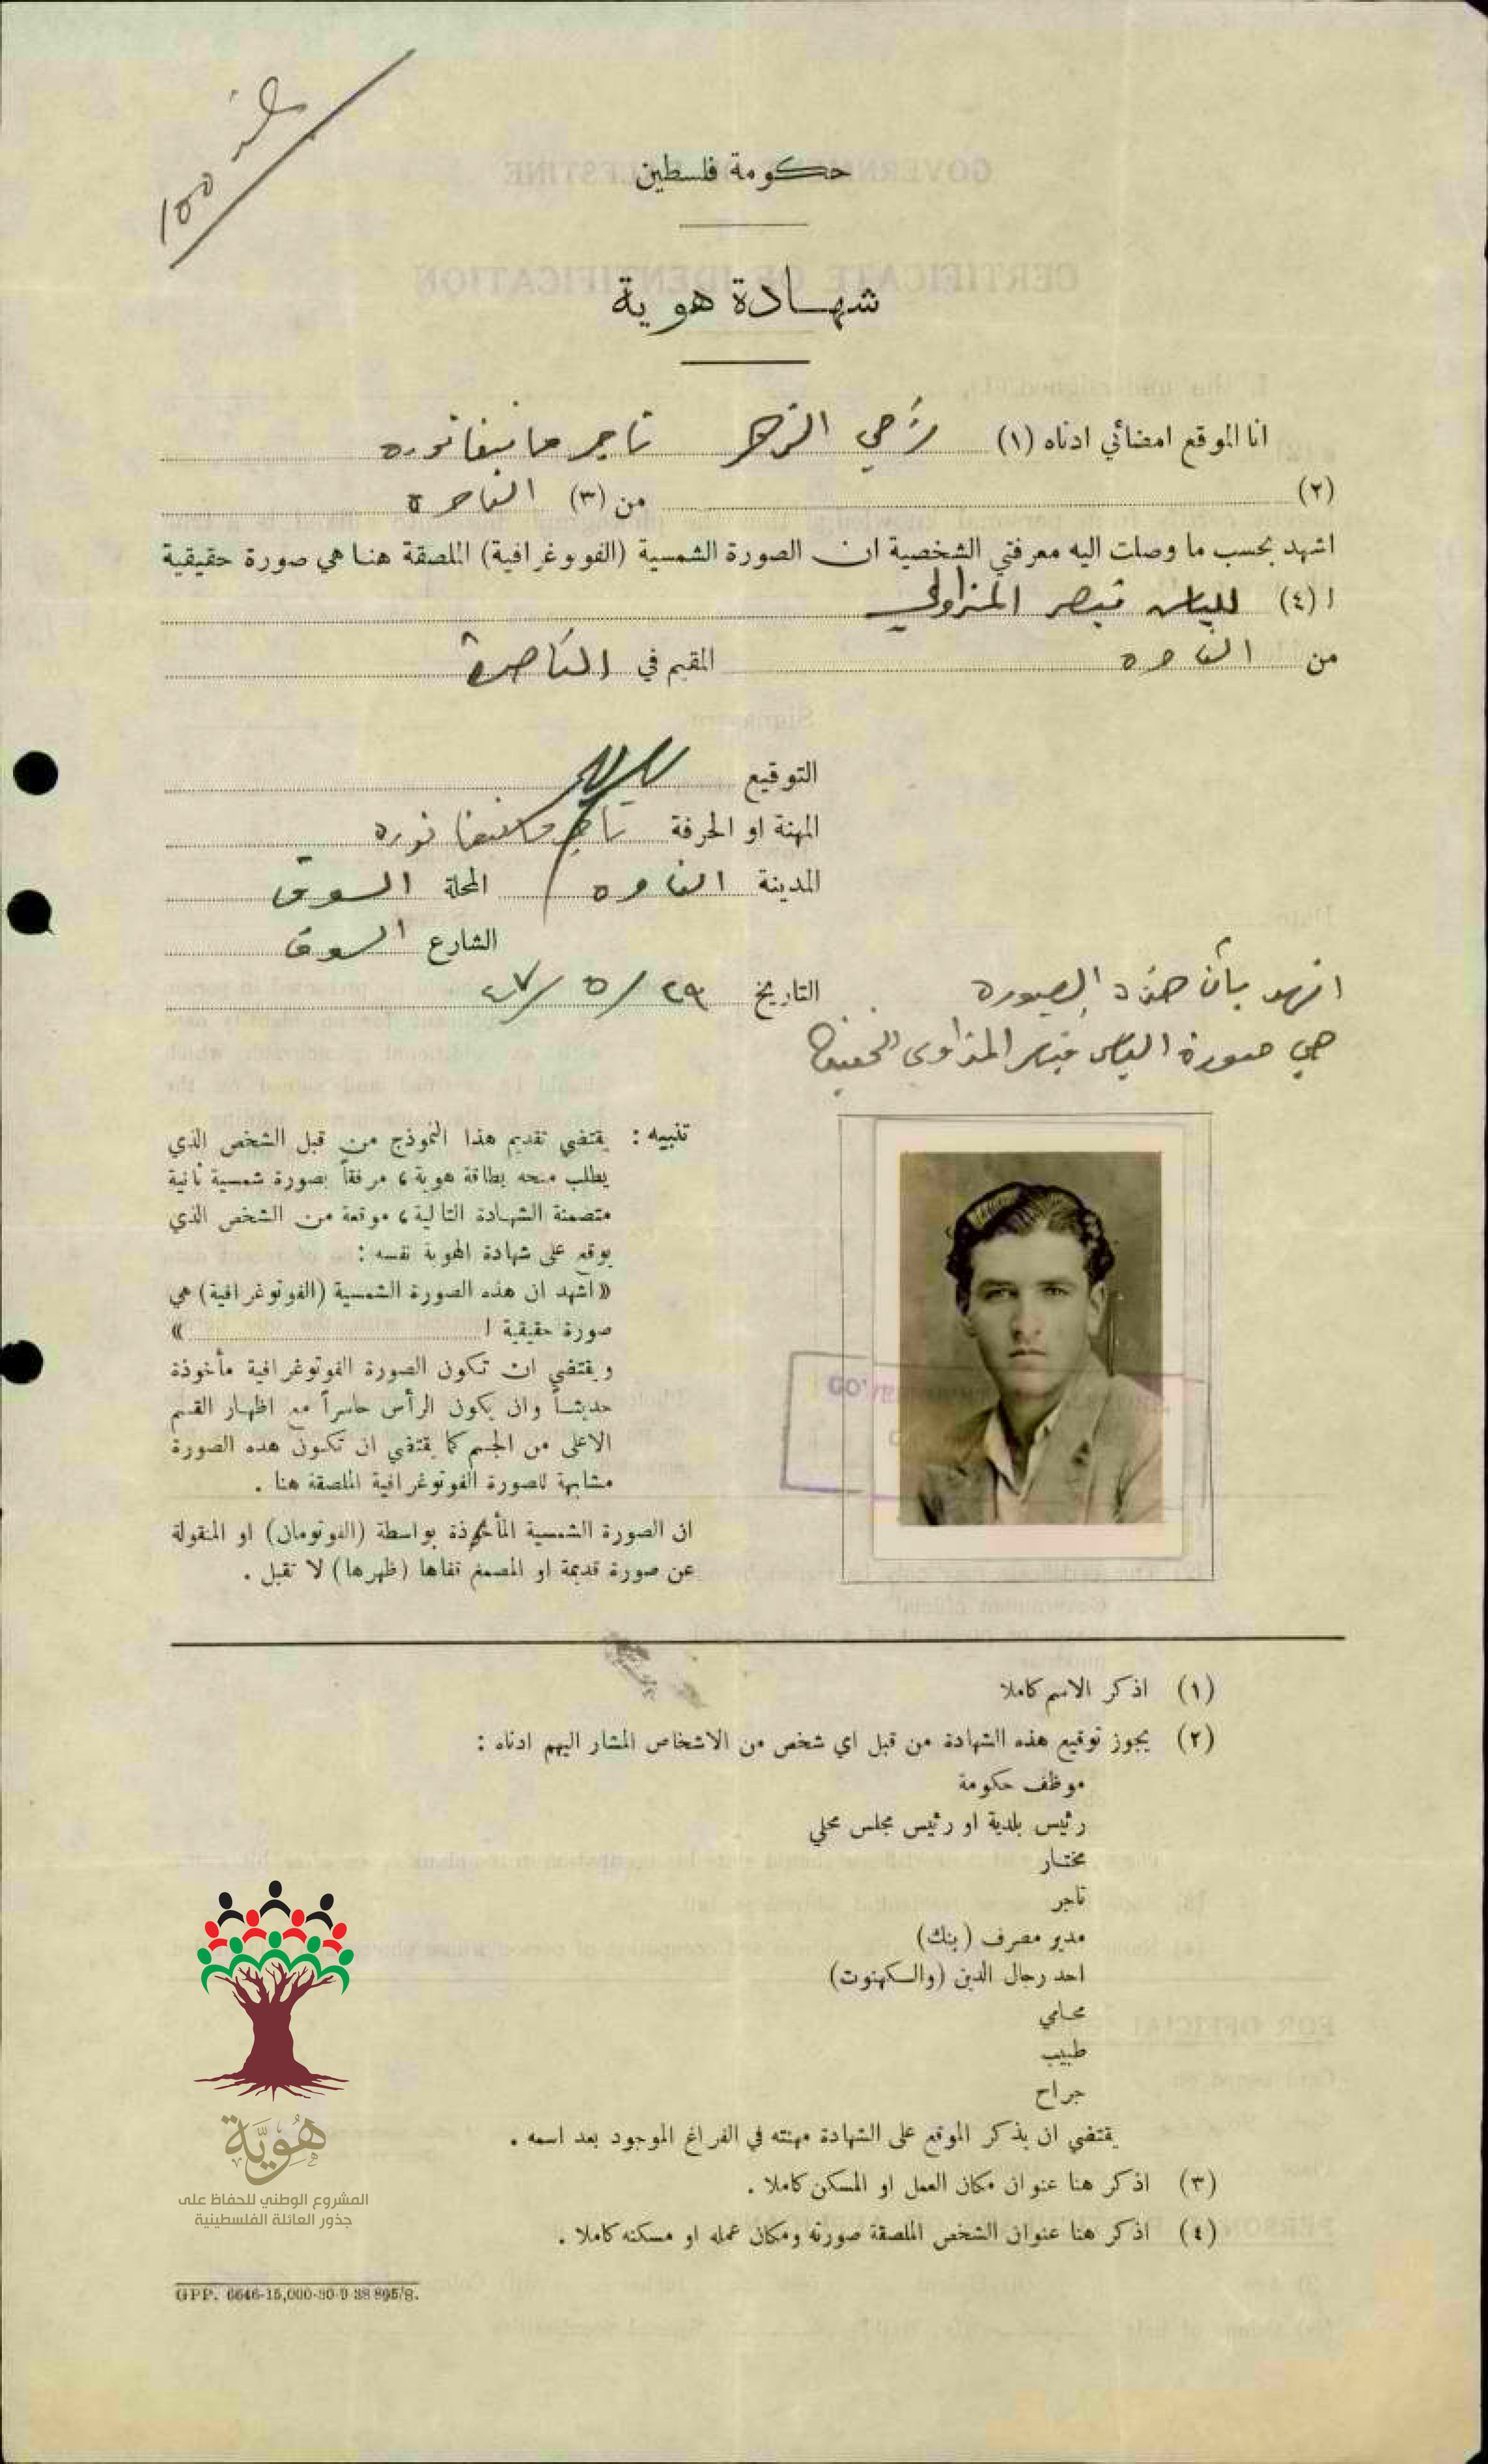 حكومة فلسطين
شهادة هوية
انا الموقع امضائي ادناه (١) تاجر مانيفاتوره
(٢) من (٣) الناصرة
اشهد بحسب ما وصلت اليه معرفتي الشخصية ان الصورة الشمسية (الفوتوغرافية) الملصقة هنا هي صورة حقيقية
ا (٤) الياس قيصر المزاوي
من الناصره المقيم في الناصرة
التوقيع
المهنة او الحرفة تاجر مانيفاتوره
المدينة الناصره المحلة السوق
الشارع السوق
التاريخ ٢٩/٥/٤٧
اشهد بأن هذه الصوره
هي صورة الياس قيصر المزاوي الحقيقية
تنبيه : يقتضي تقديم هذا النموذج من قبل الشخص الذي
يطلب منحه بطاقة هوية، مرفقاً بصورة شمسية ثانية
متضمنة الشهادة التالية، موقعة من الشخص الذي
يوقع على شهادة الهوية نفسه :
«اشهد ان هذه الصورة الشمسية (الفوتوغرافية) هي
صورة حقيقية ا »
ويقتضي ان تكون الصورة الفوتوغرافية مأخوذة
حديثاً وان يكون الرأس حاسراً مع اظهار القسم
الاعلى من الجسم كما يقتضي ان تكون هذه الصورة
مشابهة للصورة الفوتوغرافية الملصقة هنا .
ان الصورة الشمسية المأخوذة بواسطة (الفوتومان) او المنقولة
عن صورة قديمة او المصمغ قفاها (ظهرها) لا تقبل .
(١) اذكر الاسم كاملا
(٢) يجوز توقيع هذه الشهادة من قبل اي شخص من الاشخاص المشار اليهم ادناه :
موظف حكومة
رئيس بلدية او رئيس مجلس محلي
مختار
تاجر
مدير مصرف (بنك)
احد رجال الدين (والكهنوت)
محامي
طبيب
جراح
يقتضي ان يذكر الموقع على الشهادة مهنته في الفراغ الموجود بعد اسمه .
(٣) اذكر هنا عنوان مكان العمل او المسكن كاملا .
(٤) اذكر هنا عنوان الشخص الملصقة صورته ومكان عمله او مسكنه كاملا .
هُوِيَّة
المشروع الوطني للحفاظ على
جذور العائلة الفلسطينية
GPP. 6646-15,000-30-9-38 895/S.